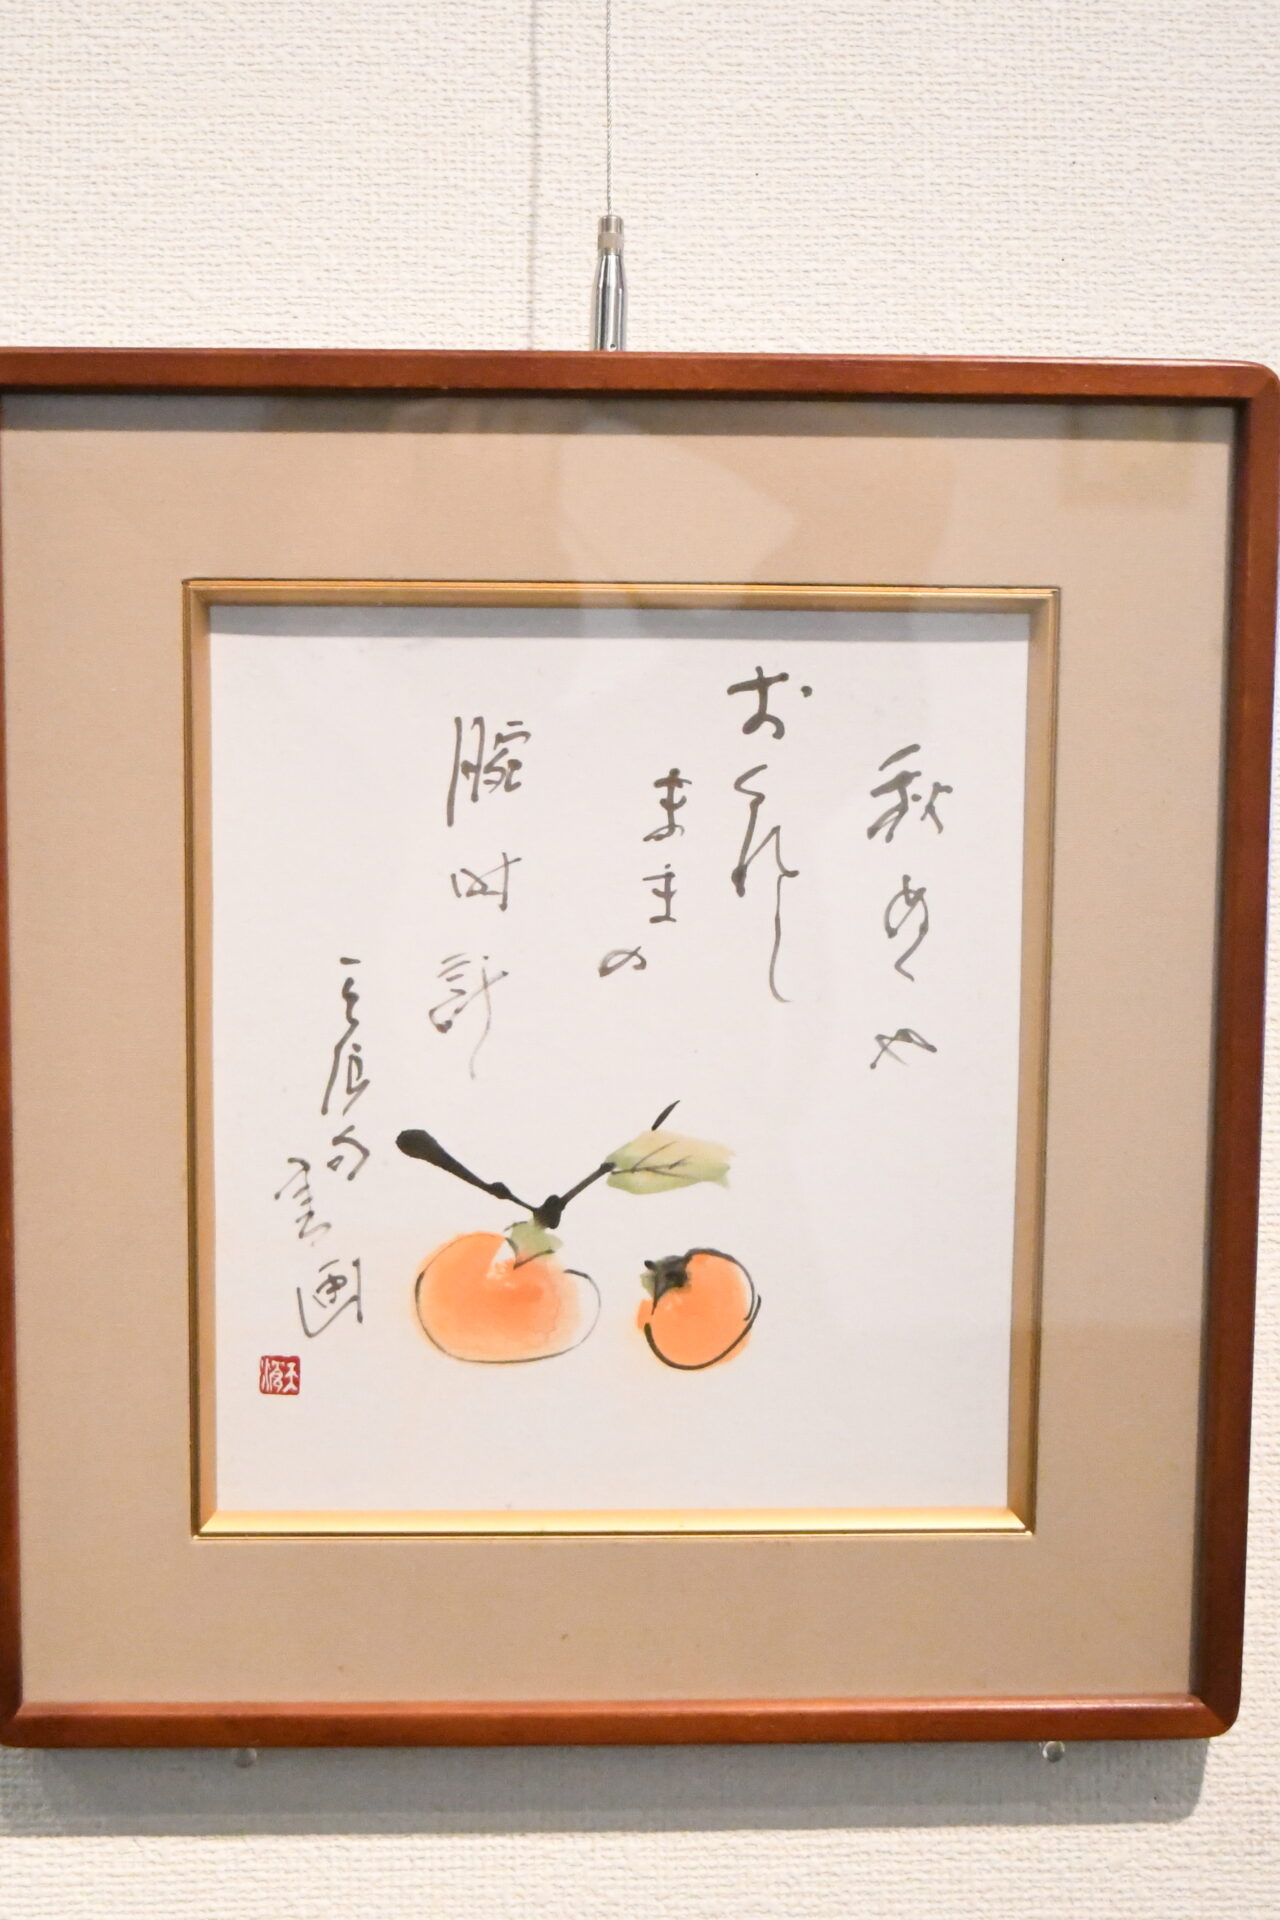 秋めくや
おくれし
ままの
腕時計
画